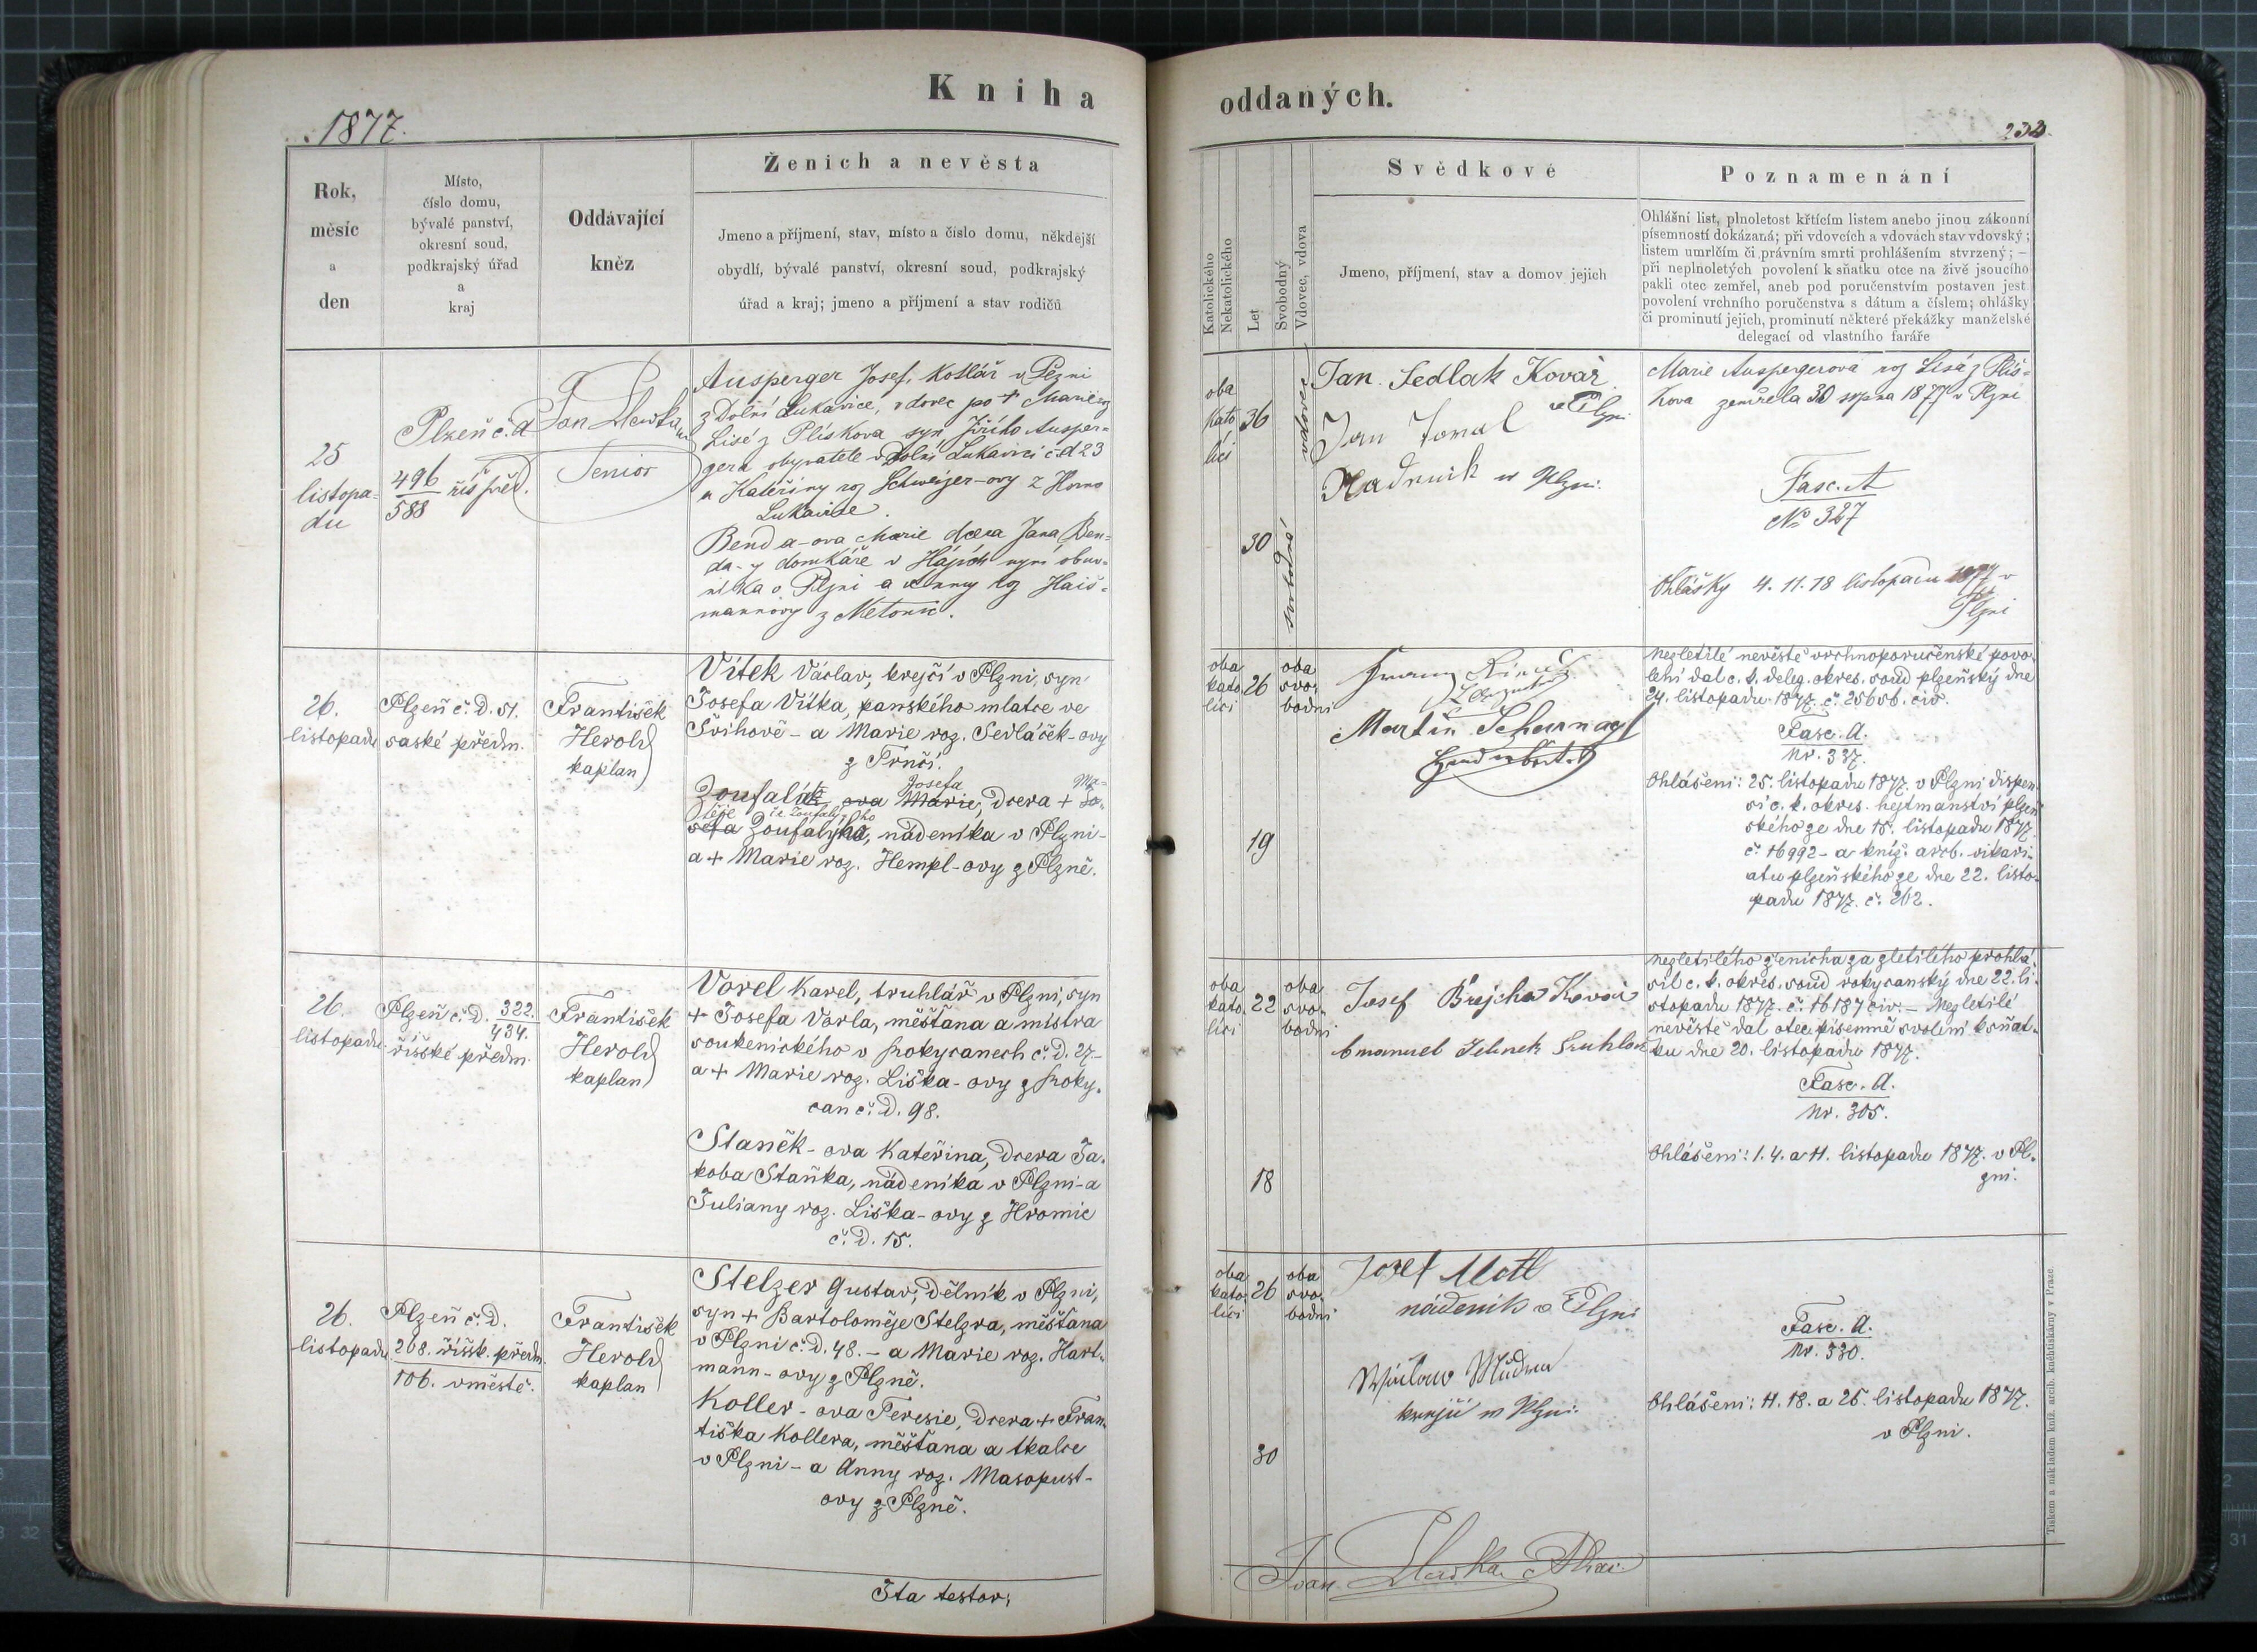 Kniha
1877.
Rok,
měsíc
a
den
Místo,
číslo domu,
bývalé panství,
okresní soud,
podkrajský úřad
a
kraj
Oddávající
kněz
Ženich a nevěsta
Jmeno a příjmení, stav, místo a číslo domu, někdejší
obydlí, bývalé panství, okresní soud, podkrajský
úřad a kraj; jmeno a příjmení a stav rodičů
25
listopa-
du
Plzeň č. d
496
588
říš
Jan
Senior
Ausperger Josef, Kotlář v Plzni
z Dolní Lukavice, vdovec po † Marii roz
Lisé z Plískova syn Jiřího Ausper-
gera obyvatele v Dolní Lukavici č.d 23
a Kateřiny roz Schweijer-ovy z Horno
Lukavice.
Bend a-ova Marie dcera Jana Ben-
da-y domkáře v Hájích nyní obuv-
níka v Plzni a Anny roz Hais-
mannovy z Metonic.
26.
listopadu
Plzeň č. D. 51.
saské předm.
František
Herold
kaplan
Vítek Václav, krejčí v Plzni, syn
Josefa Vítka, panského mlatce ve
Švihově - a Marie roz. Sedláček-ovy
z Trnčí.
Josefa Ma-
Zoufalá ova Marie, dcera + Jo-
těje
sefa Zoufalýho, nádeníka v Plzni -
a + Marie roz. Hempl-ovy z Plzně.
26.
listopadu
Plzeň č. D. 322.
434.
říšské předm.
František
Herold
kaplan
Vorel Karel, truhlář v Plzni, syn
+ Josefa Vorla, měšťana a mistra
soukenického v Rokycanech č. D. 27 -
a + Marie roz. Liška-ovy z Roky-
can č. D. 98.
Staněk-ova Kateřina, dcera Ja-
koba Staňka, nádeníka v Plzni - a
Juliany roz. Liška-ovy z Hromic
č. D. 15.
26.
listopadu
Plzeň č. D.
208. říšsk. předm.
106. v městě.
František
Herold
kaplan
Stelzer Gustav, dělník v Plzni,
syn + Bartoloměje Stelzra, měšťana
v Plzni č. D. 48. - a Marie roz. Hart-
mann-ovy z Plzně.
Koller-ova Teresie, dcera + Fran-
tiška Kollera, měšťana a tkalce
v Plzni - a Anny roz. Masopust-
ovy z Plzně.
Ita testor;
oddaných.
Katolického
Nekatolického
Let
Svobodný
Vdovec, vdova
Svědkové
Jmeno, příjmení, stav a domov jejich
Poznamenání
Ohlášní list, plnoletost křtícím listem anebo jinou zákonní
písemností dokázaná; při vdovcích a vdovách stav vdovský;
listem umrlčím či právním smrti prohlášením stvrzený; —
při neplnoletých povolení k sňatku otce na živě jsoucího
pakli otec zemřel, aneb pod poručenstvím postaven jest
povolení vrchního poručenstva s dátum a číslem; ohlášky
či prominutí jejich, prominutí některé překážky manželské
delegací od vlastního faráře
oba
kato
líci
36
vdovec
30
svobodná
Jan. Sedlak Kovář
v Plzni
Jan
w Plzni.
Marie Auspergerová roz Lisá z Plís-
kova zemřela 30 srpna 1877 v Plzni
Fasc. A
No 327
Ohlášky 4. 11. 18 listopadu 1877 v
Plzni
oba
kato-
líci
26
oba
svo-
bodni
19
Martin
Nezletilé nevěstě vrchnoporučenské povo-
lení dal c. k. deleg. okres. soud plzeňský dne
24. listopadu 1877. č. 25656. civ.
Fasc. A.
Nr. 337.
Ohlášeni: 25. listopadu 1877. v Plzni dispen-
sí c. k. okres. hejtmanství plzeň-
ského ze dne 18. listopadu 1877.
č. 16992 - a kníž. arcb. vikari-
átu plzeňského ze dne 22. listo-
padu 1877. č. 262.
oba
kato-
líci
22
oba
svo-
bodni
18
Josef Brejcha Kovář
Emanuel Jelinek
Nezletilého ženicha za zletilého prohlá-
sil c. k. okres. soud rokycanský dne 22. li-
stopadu 1877. č. 16187 civ. - Nezletilé
nevěstě dal otec písemně svolení k sňat-
ku dne 20. listopadu 1877.
Fasc. A.
Nr. 305.
Ohlášeni: 1. 4. a 11. listopadu 1877. v Pl-
zni.
oba
kato-
líci
26
oba
svo-
bodni
30
Josef Motl
nádeník v Plzni
krejčí w Plzni.
Fasc. A.
Nr. 330.
Ohlášeni: 11. 18. a 25. listopadu 1877.
v Plzni.
Tiskem a nákladem kníž. arcib. knihtiskárny v Praze.